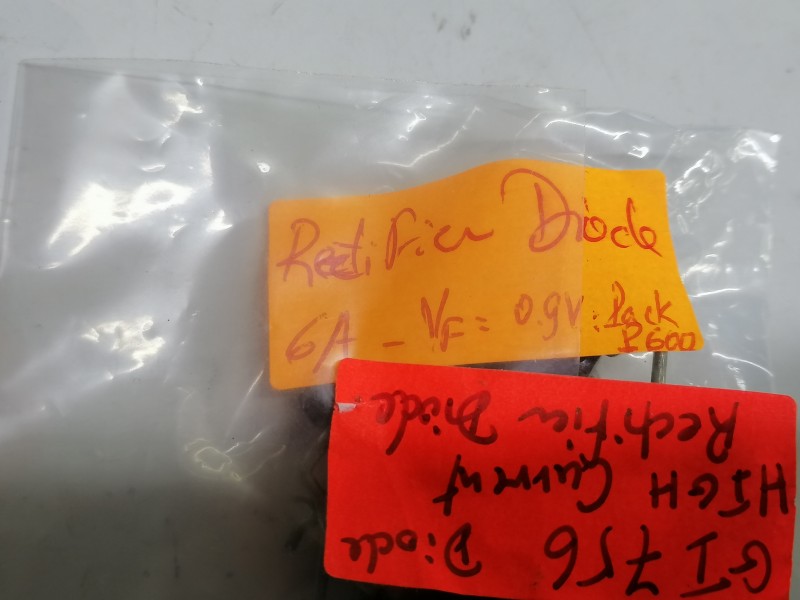 Rectifier Diode
6A - VF = 0.9V : Pack
P600
GI 756 Diode
HIGH Current
Rectifier Diode